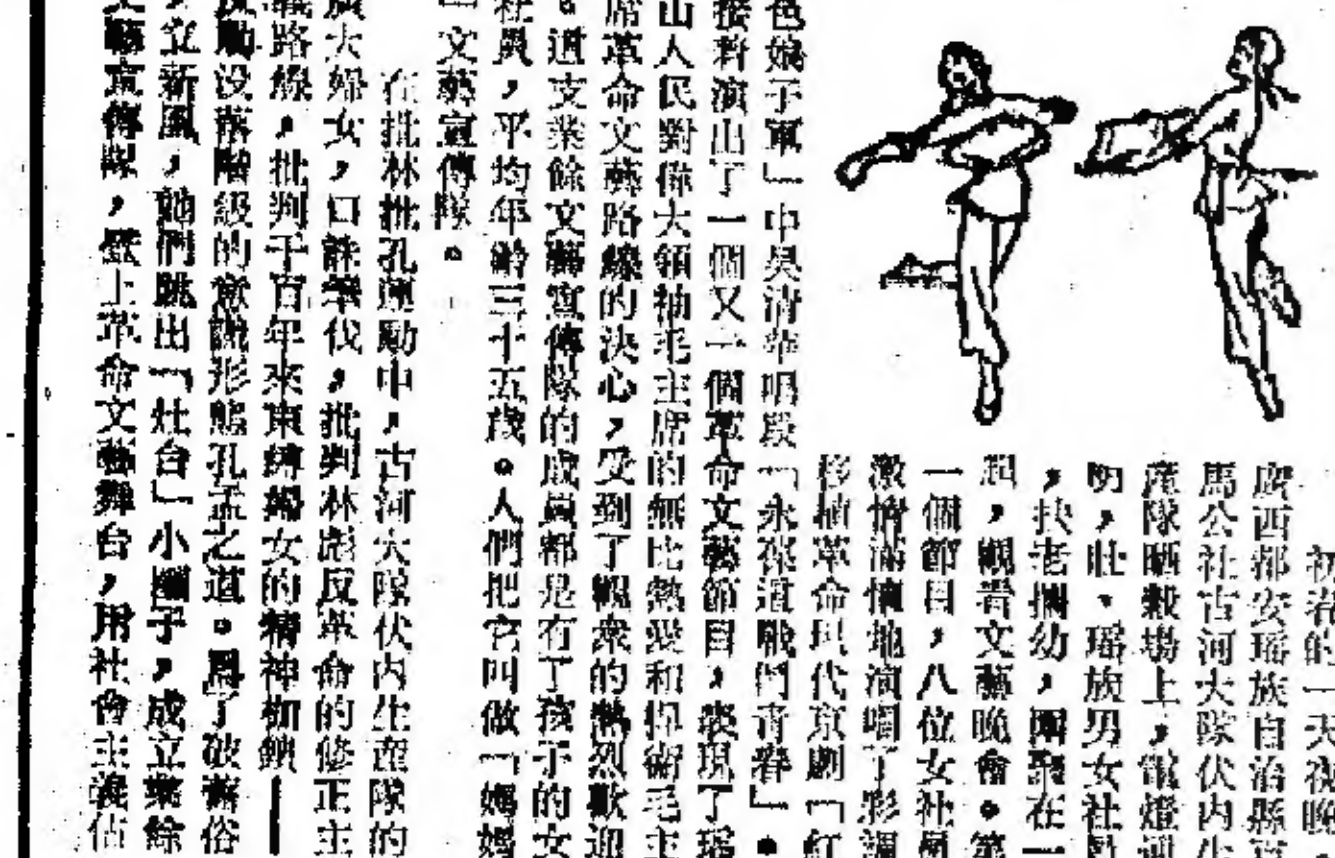 初春的一天夜晚，
廣西都安瑤族自治縣
馬公社古河大隊伏内生
產隊晒穀場上，電燈通
明，壯、瑶族男女社員
，扶老攜幼，團聚在一
起，觀看文藝晚會。第
一個節目，八位女社員
激情滿懷地演唱了彩調
移植革命現代京劇「紅
色娘子軍」中吳清華唱段「永葆這戰鬥青春」。
接着演出了一個又一個革命文藝節目，表現了瑶
山人民對偉大領袖毛主席的無比熱愛和捍衛毛主
席革命文藝路線的決心，受到了觀衆的熱烈歡迎
。這支業餘文藝宣傳隊的成員都是有了孩子的女
社員，平均年齡三十五歲。人們把它叫做「媽媽
」文藝宣傳隊。
在批林批孔運動中，古河大隊伏内生產隊的
廣大婦女，口誅筆伐，批判林彪反革命的修正主
義路線，批判千百年來束縛婦女的精神枷鎖——
反動没落階級的意識形態孔孟之道。爲了破舊俗
，立新風，她們跳出「灶台」小圈子，成立業餘
文藝宣傳隊，登上革命文藝舞台，用社會主義佔